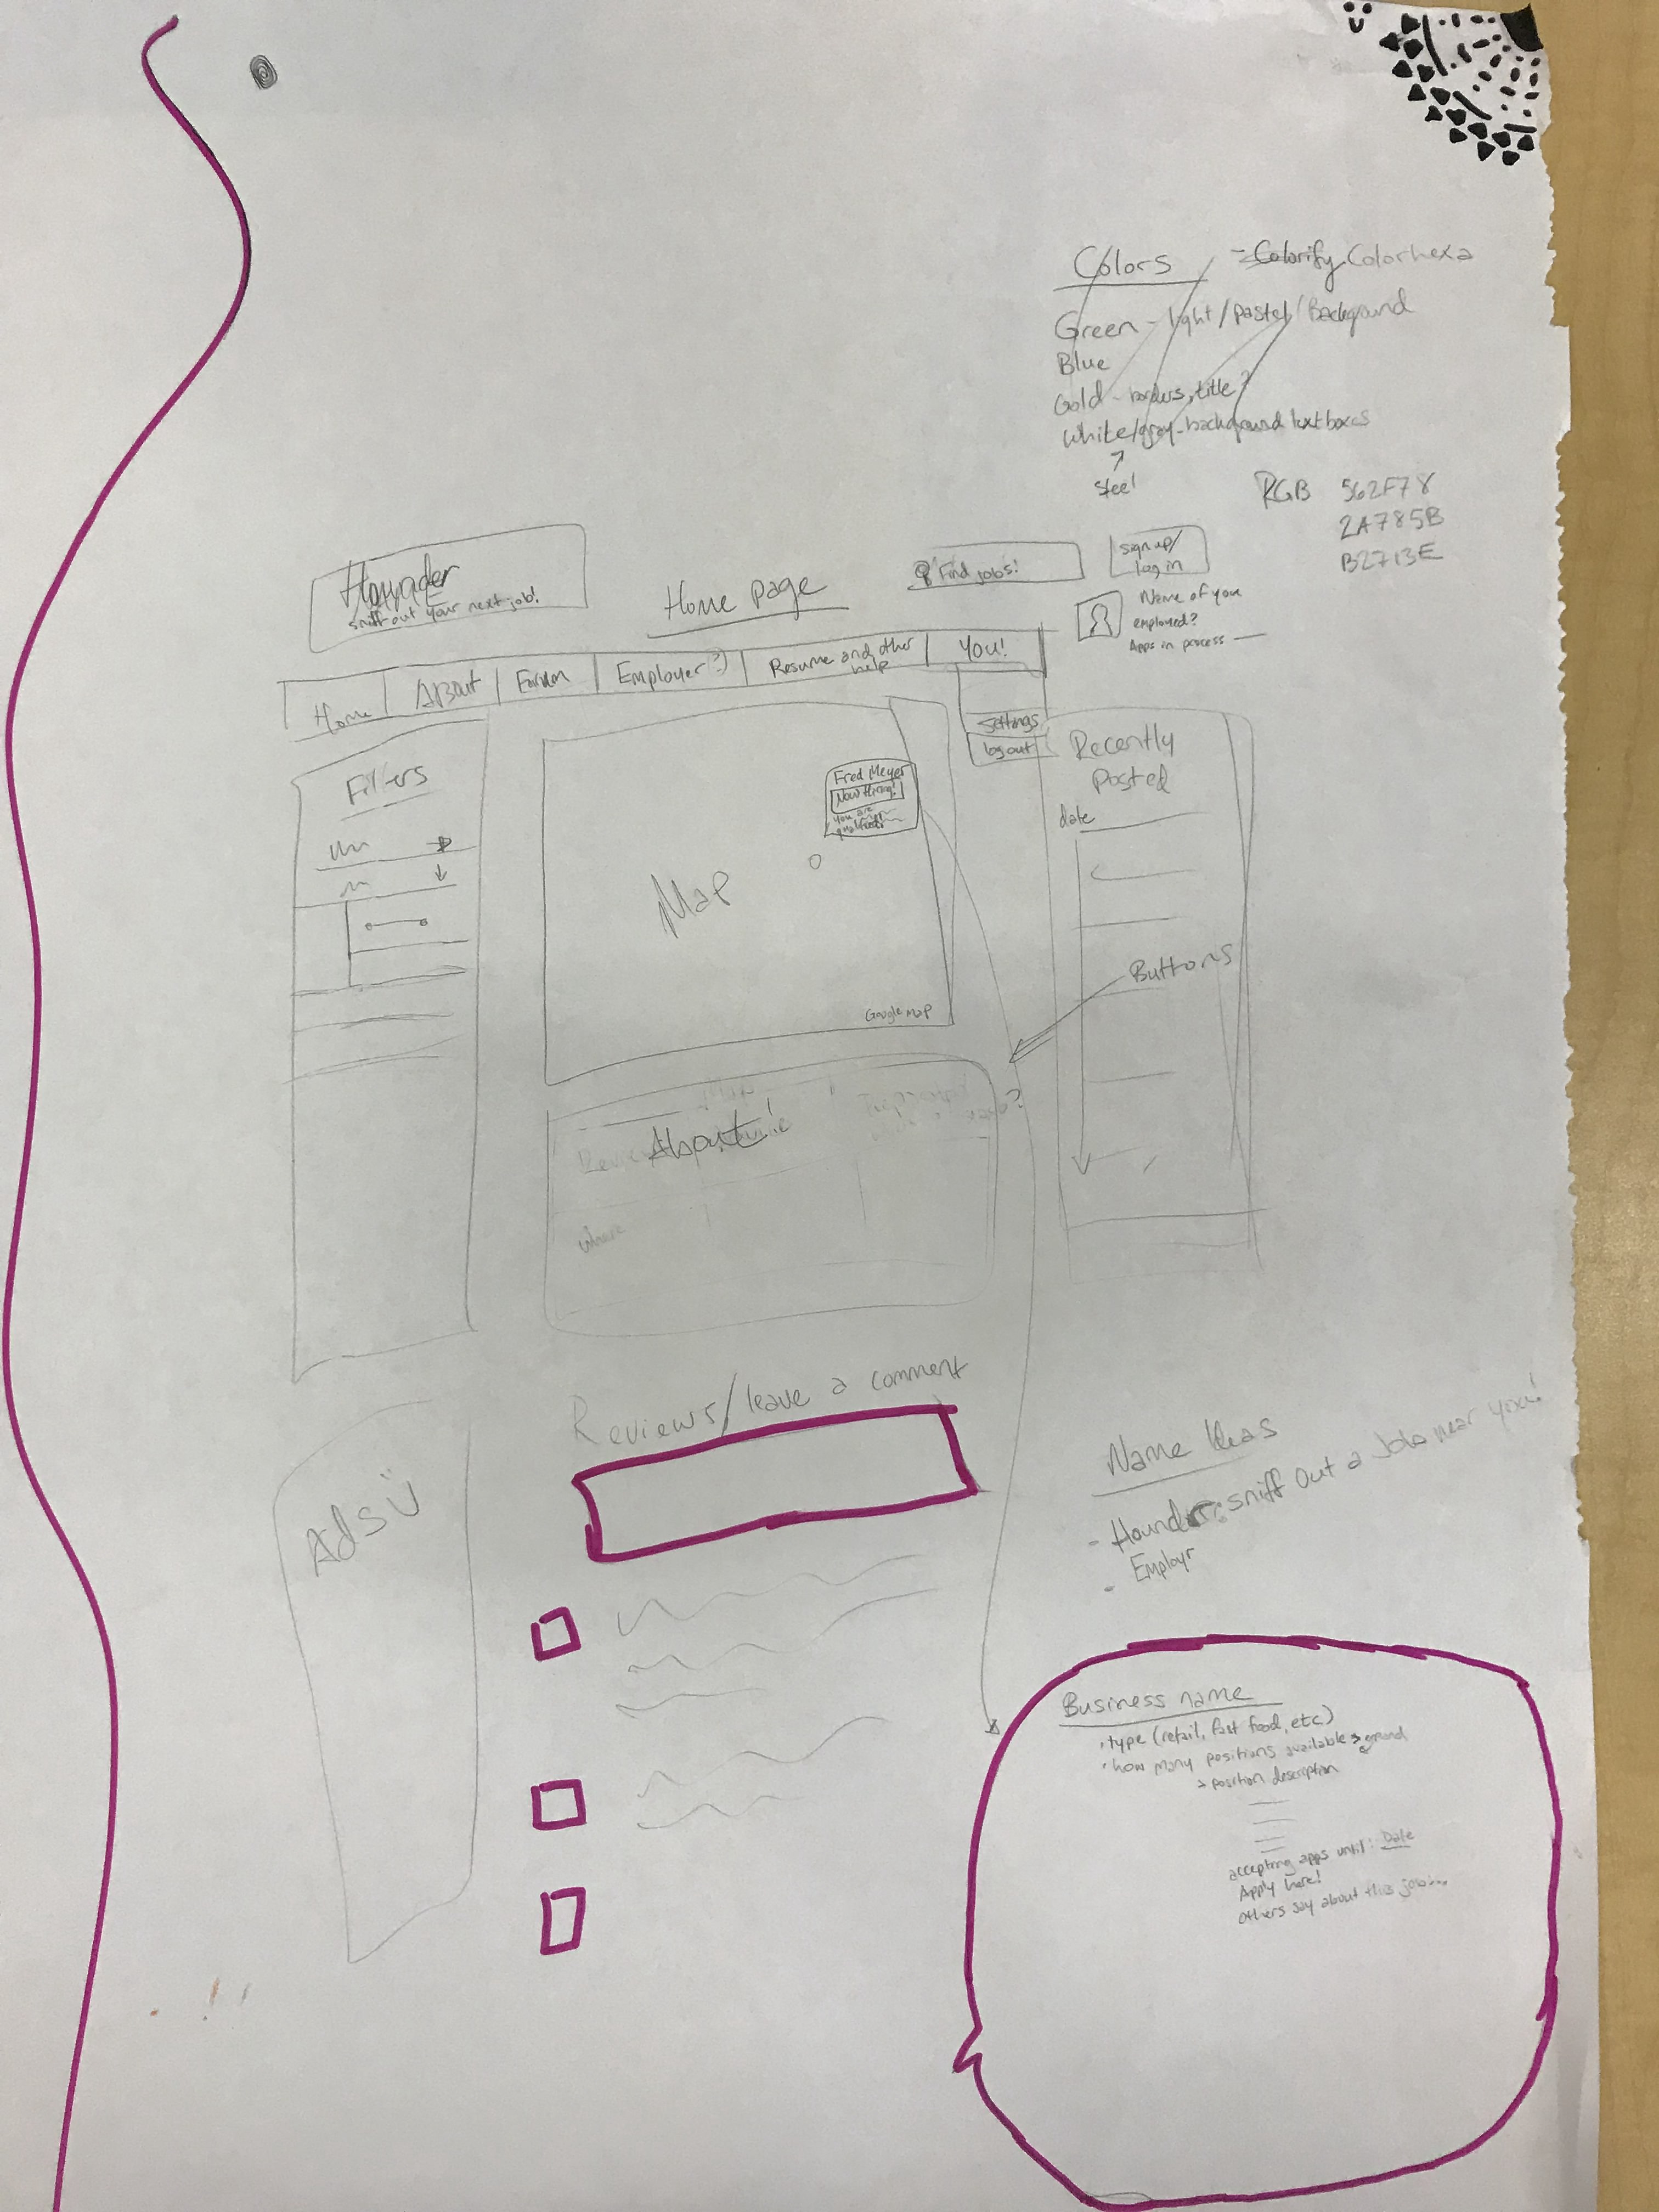 Colors - Colorify Colorhexa
Green - light/pastel/Background
Blue
Gold - borders, title?
White/gray - background text boxes
Steel
RGB 562F78
2A785B
B2713E
Hounder
sniff out your next job!
Home page
Find jobs!
sign up/
log in
Name of you
employed?
Apps in process
Home
About
Forum
Employer?)
Resume and other
help
You!
Settings
log out
Filters
Fred Meyer
Now Hiring!
you are
qualified!
Map
Google Map
Recently
Posted
date
Buttons
About!
where
Reviews/leave a comment
Ads
Name Ideas
- Hounder: sniff out a Job near you!
- Employr
Business name
type (retail, fast food, etc)
how many positions available
→ position description
accepting apps until: Date
Apply here!
others say about this job...